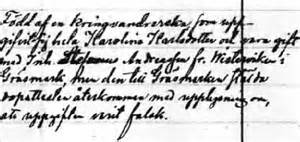 Född af en kringvandrerska som upp-
gifvit sig heta Karolina Karlsdotter och vara gift
med Joh. Stefanus Andreasson fr. Westerviken i
Gräsmark, men den till Gräsmark sända
dopattesten återkommen med upplysning om,
att uppgiften varit falsk.